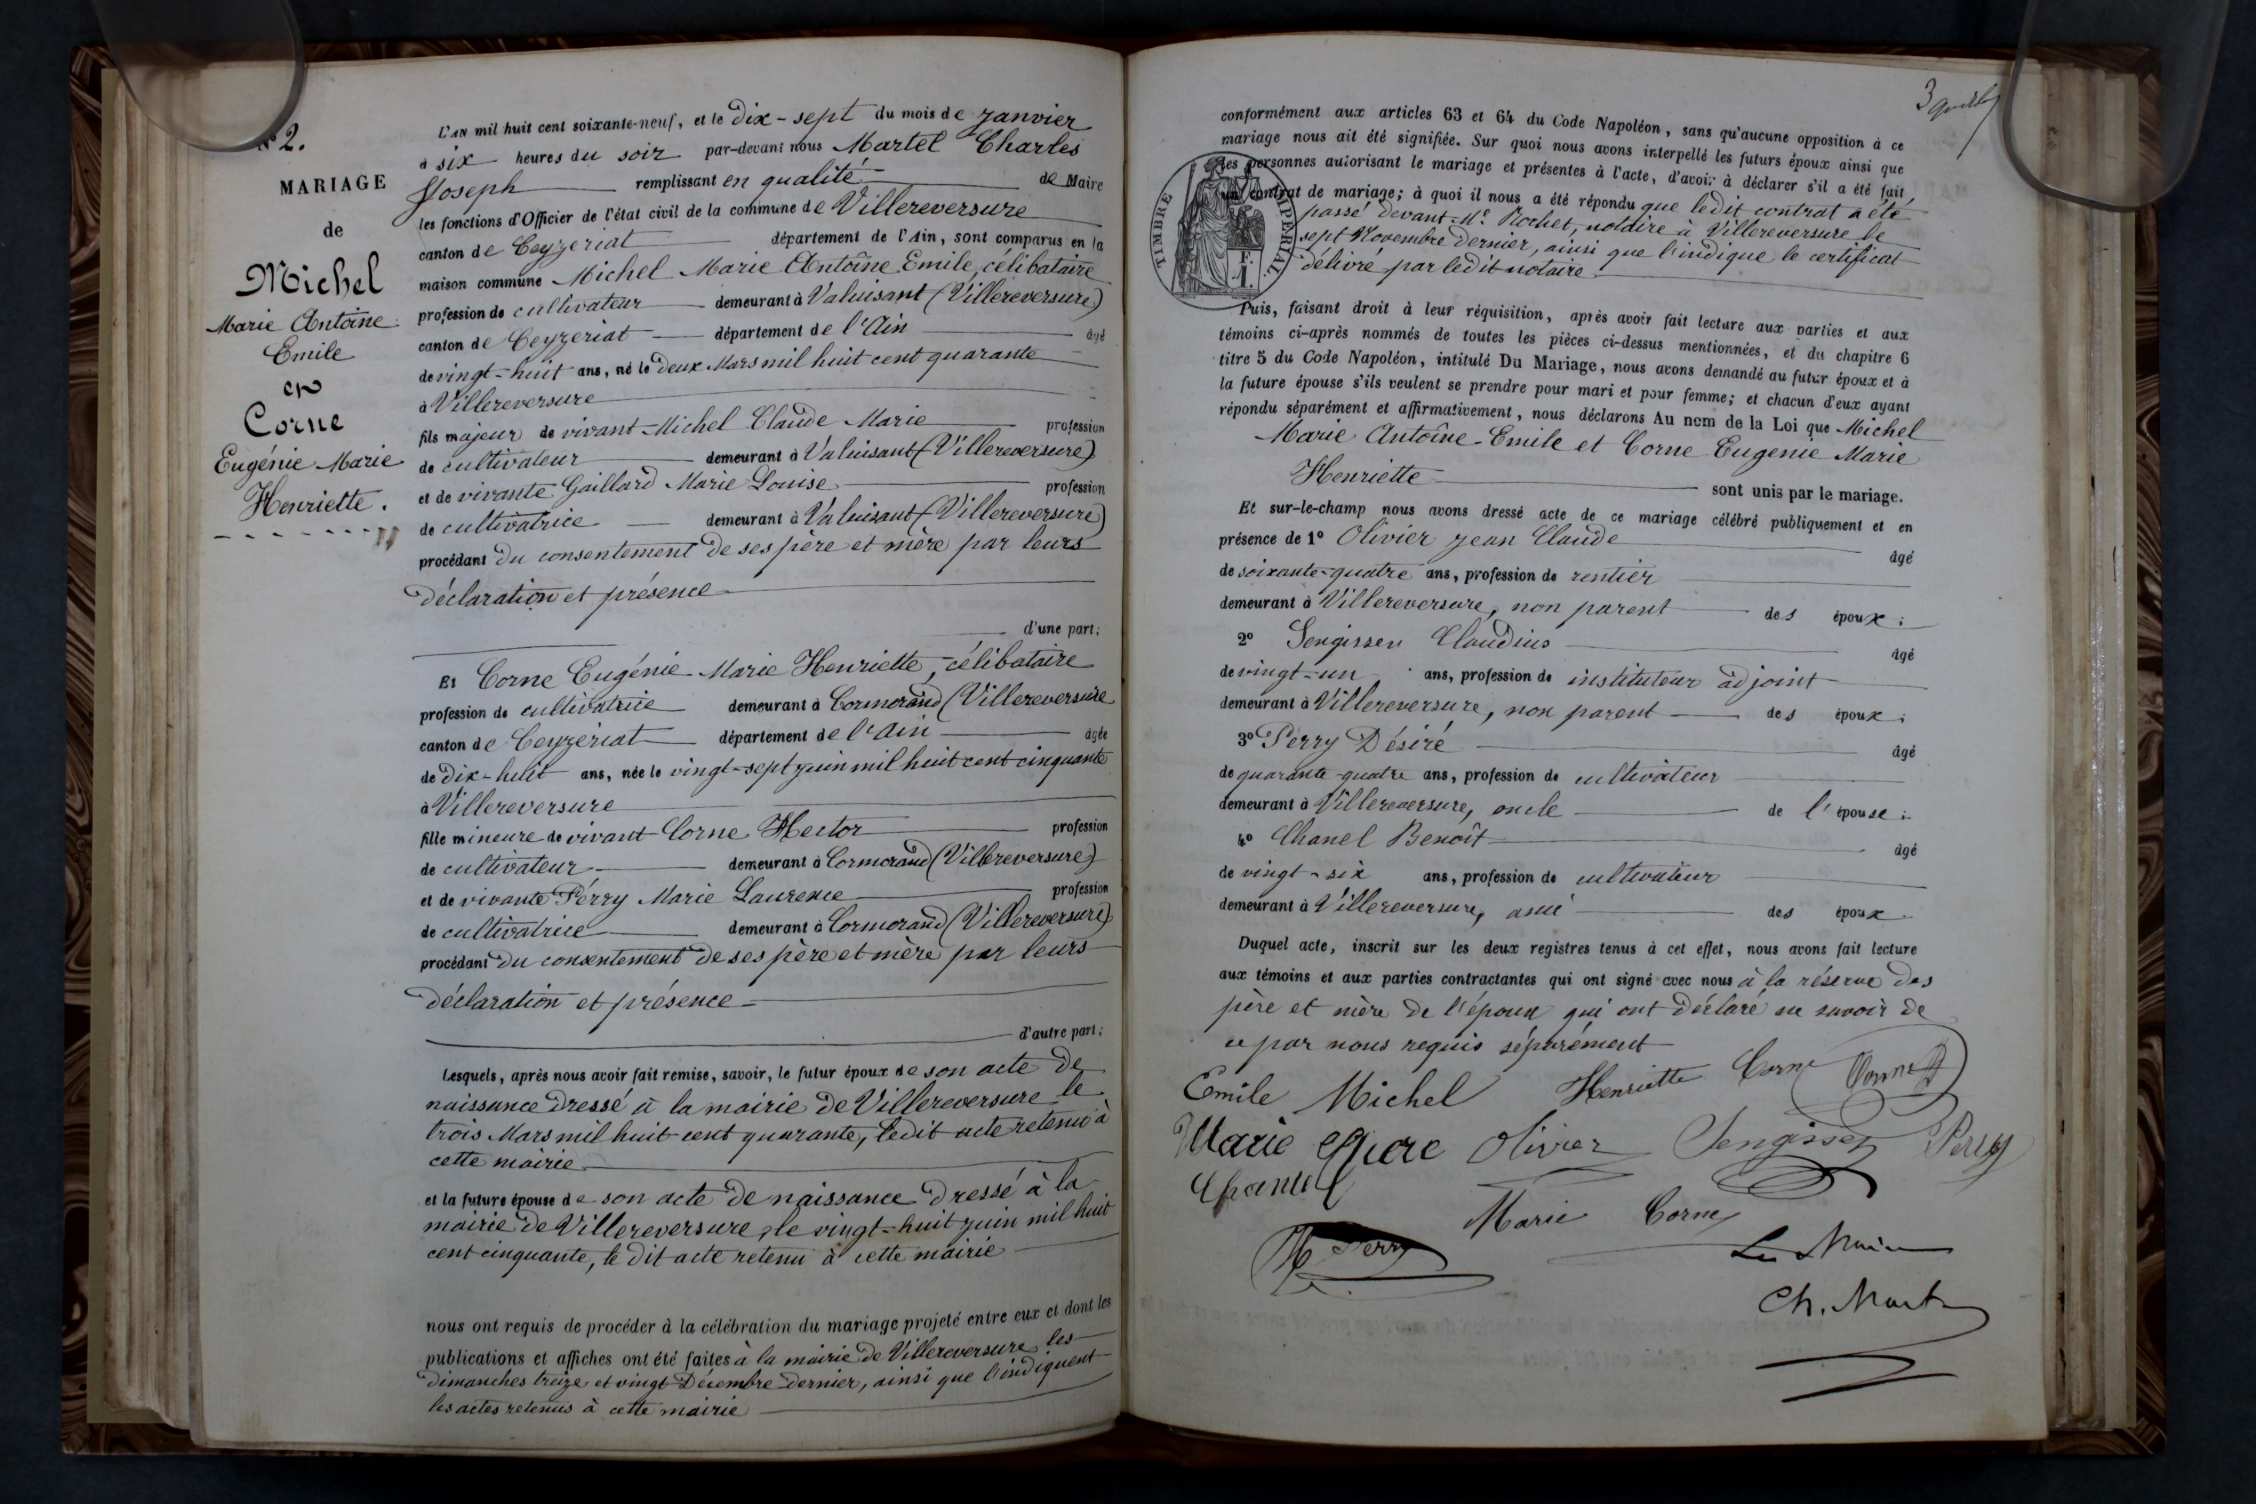 N° 2.
MARIAGE
de
Michel
Marie Antoine
Emile
et
Corne
Eugénie Marie
Henriette.
L'AN mil huit cent soixante-neuf, et le Dix-sept du mois de Janvier
à six heures du soir par-devant nous Martel Charles
Joseph remplissant en qualité de Maire
les fonctions d'Officier de l'état civil de la commune de Villereversure
canton de Ceyzeriat département de l'Ain, sont comparus en la
maison commune Michel Marie Antoine Emile, célibataire
profession de cultivateur demeurant à Valuisant (Villereversure)
canton de Ceyzeriat département de l'Ain âgé
de vingt-huit ans, né le deux Mars mil huit cent quarante
à Villereversure
fils majeur de vivant Michel Claude Marie profession
de cultivateur demeurant à Valuisant (Villereversure)
et de vivante Gaillard Marie Louise profession
de cultivatrice demeurant à Valuisant (Villereversure)
procédant du consentement de ses père et mère par leurs
déclaration et présence
d'une part;
Et Corne Eugénie Marie Henriette, célibataire
profession de cultivatrice demeurant à Cormorand (Villereversure
canton de Ceyzeriat département de l'Ain âgée
de Dix-huit ans, née le vingt-sept Juin mil huit cent cinquante
à Villereversure
fille mineure de vivant Corne Hector profession
de cultivateur demeurant à Cormorand (Villereversure)
et de vivante Perry Marie Laurence profession
de cultivatrice demeurant à Cormorand (Villereversure)
procédant du consentement de ses père et mère par leurs
déclaration et présence
d'autre part;
Lesquels, après nous avoir fait remise, savoir, le futur époux de son acte de
naissance dressé à la mairie de Villereversure le
trois Mars mil huit cent quarante, ledit acte retenu à
cette mairie
et la future épouse de son acte de naissance dressé à la
mairie de Villereversure, le vingt-huit Juin mil huit
cent cinquante, le dit acte retenu à cette mairie
nous ont requis de procéder à la célébration du mariage projeté entre eux et dont les
publications et affiches ont été faites à la mairie de Villereversure les
dimanches treize et vingt Décembre dernier, ainsi que l'indiquent
les actes retenus à cette mairie
3
conformément aux articles 63 et 64 du Code Napoléon, sans qu'aucune opposition à ce
mariage nous ait été signifiée. Sur quoi nous avons interpellé les futurs époux ainsi que
les personnes autorisant le mariage et présentes à l'acte, d'avoir à déclarer s'il a été fait
un contrat de mariage; à quoi il nous a été répondu que ledit contrat a été
passé devant Me Rochet, notaire à Villereversure le
sept Novembre dernier, ainsi que l'indique le certificat
délivré par ledit notaire
TIMBRE IMPÉRIAL.
Puis, faisant droit à leur réquisition, après avoir fait lecture aux parties et aux
témoins ci-après nommés de toutes les pièces ci-dessus mentionnées, et du chapitre 6
titre 5 du Code Napoléon, intitulé Du Mariage, nous avons demandé au futur époux et à
la future épouse s'ils veulent se prendre pour mari et pour femme; et chacun d'eux ayant
répondu séparément et affirmativement, nous déclarons Au nom de la Loi que Michel
Marie Antoine Emile et Corne Eugenie Marie
Henriette sont unis par le mariage.
Et sur-le-champ nous avons dressé acte de ce mariage célébré publiquement et en
présence de 1° Olivier Jean Claude âgé
de soixante-quatre ans, profession de rentier
demeurant à Villereversure, non parent des époux;
2° Sengissen Claudius âgé
de vingt-un ans, profession de instituteur adjoint
demeurant à Villereversure, non parent des époux;
3° Perry Désiré âgé
de quarante-quatre ans, profession de cultivateur
demeurant à Villereversure, oncle de l'épouse;
4° Chanel Benoît âgé
de vingt-six ans, profession de cultivateur
demeurant à Villereversure, ami des époux
Duquel acte, inscrit sur les deux registres tenus à cet effet, nous avons fait lecture
aux témoins et aux parties contractantes qui ont signé avec nous à la réserve des
père et mère de l'époux qui ont déclaré ne savoir de
ce par nous requis séparément
Emile Michel Henriette Corne Corne
Marie Olivier Sengissen Perry
Chanel
Marie Corne
Perry
Le Maire
Ch. Martel